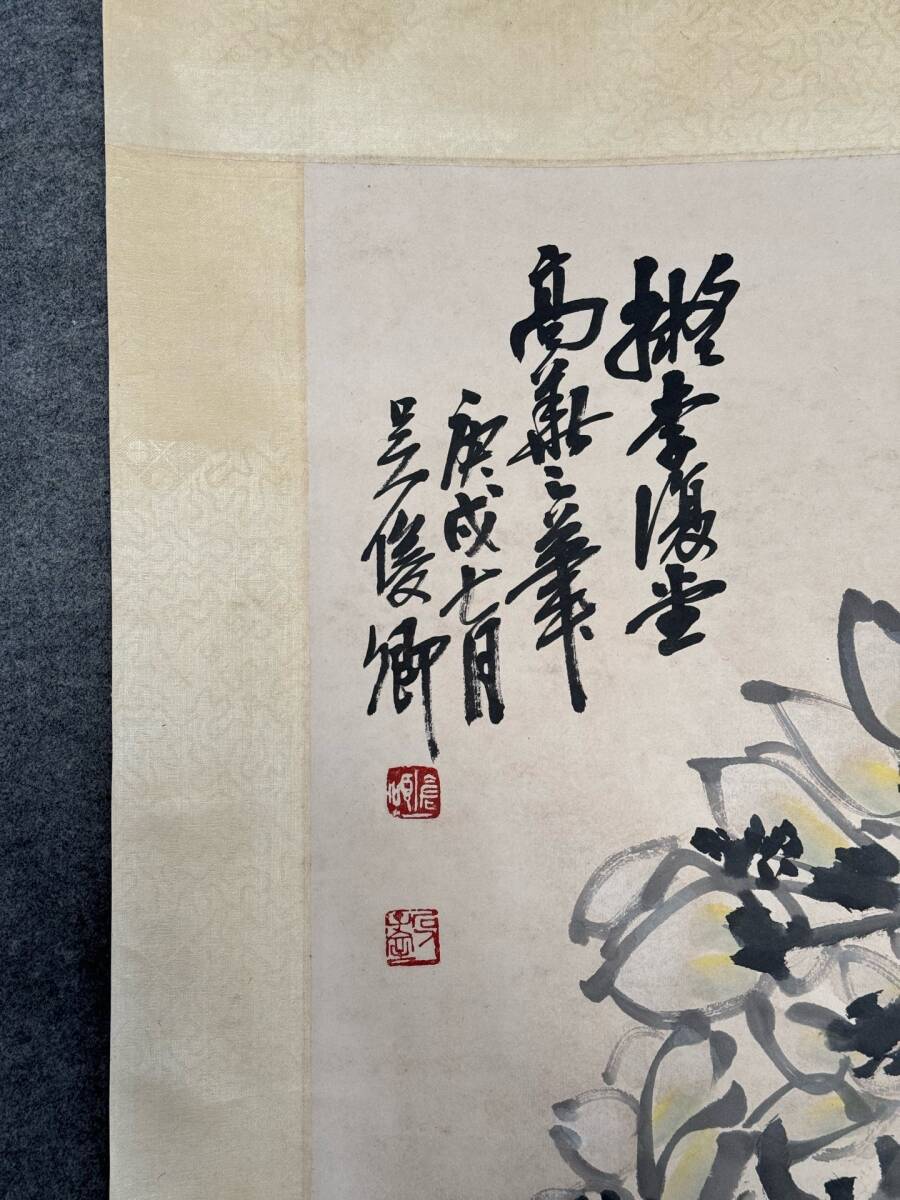 擬李復堂
高華之筆
庚戌七月
吳俊卿